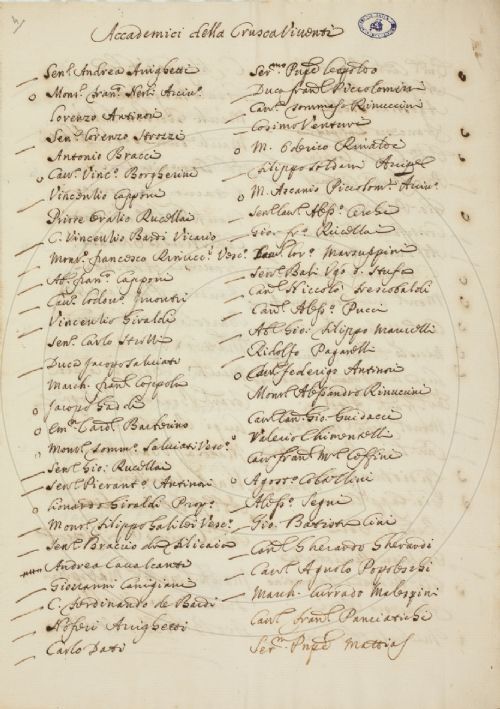 Accademici della Crusca Viventi
Sen.r Andrea Arrighetti
Mons.r Fran.co Nerli Arciv.o
Lorenzo Antinori
Sen.r Lorenzo Strozzi
Antonio Bracci
Cav.r Vinc.o Borgherini
Vincentio Capponi
Priore Oratio Rucellai
C. Vincentio Bardi Vicario
Mons.r Francesco Rinucci Vesc.o
Ab. Fran.co Capponi
Cav.r
Vincentio Giraldi
Sen.r Carlo Strozzi
Duca Jacopo Salviati
March. Fran.co Coppoli
Jacopo Gaddi
Em.o Card.l Barberino
Mons.r Tomm.o Salviati Vesc.o
Sen.r Gio: Rucellai
Sen.r Pierant.o Antinori
Leonardo Giraldi Prop.o
Mons.r Filippo Galilei Vesc.o
Sen.r Braccio da Filicaia
Andrea Cavalcanti
Giovanni Canigiani
C. Ferdinando de Bardi
Noferi Arrighetti
Carlo Dati
Ser.mo Prnpe Leopoldo
Duca Fran.co Piccolomini
Cav.r Tommaso Rinuccini
Cosimo Venturi
M. Oderico Rinaldi
Filippo Soldani
M. Ascanio Piccolom.i Arciv.o
Sen.r Cav.r Aless.o Cerchi
Gio: Fr.o Rucellai
Cav.r Lor.o Marsuppini
Sen.r Balì Ugo d. Stufa
Can.o Niccolò Frescobaldi
Cav.r Aless.o Pucci
Ab. Gio: Filippo Marucelli
Ridolfo Paganelli
Cav.r Federigo Antinori
Mons.r Alessandro Rinuccini
Cav.r Lan. Gio: Guidacci
Valerio Chimentelli
Cav.r Fran.co M.a Ceffini
Agost.o Coltellini
Aless.o Segni
Gio. Battista Cini
Can.o Gherardo Gherardi
Cav.r Agnolo Popoleschi
March. Currado Malespini
Cav.r Fran.co Panciatichi
Ser.mo Prnpe Mattias